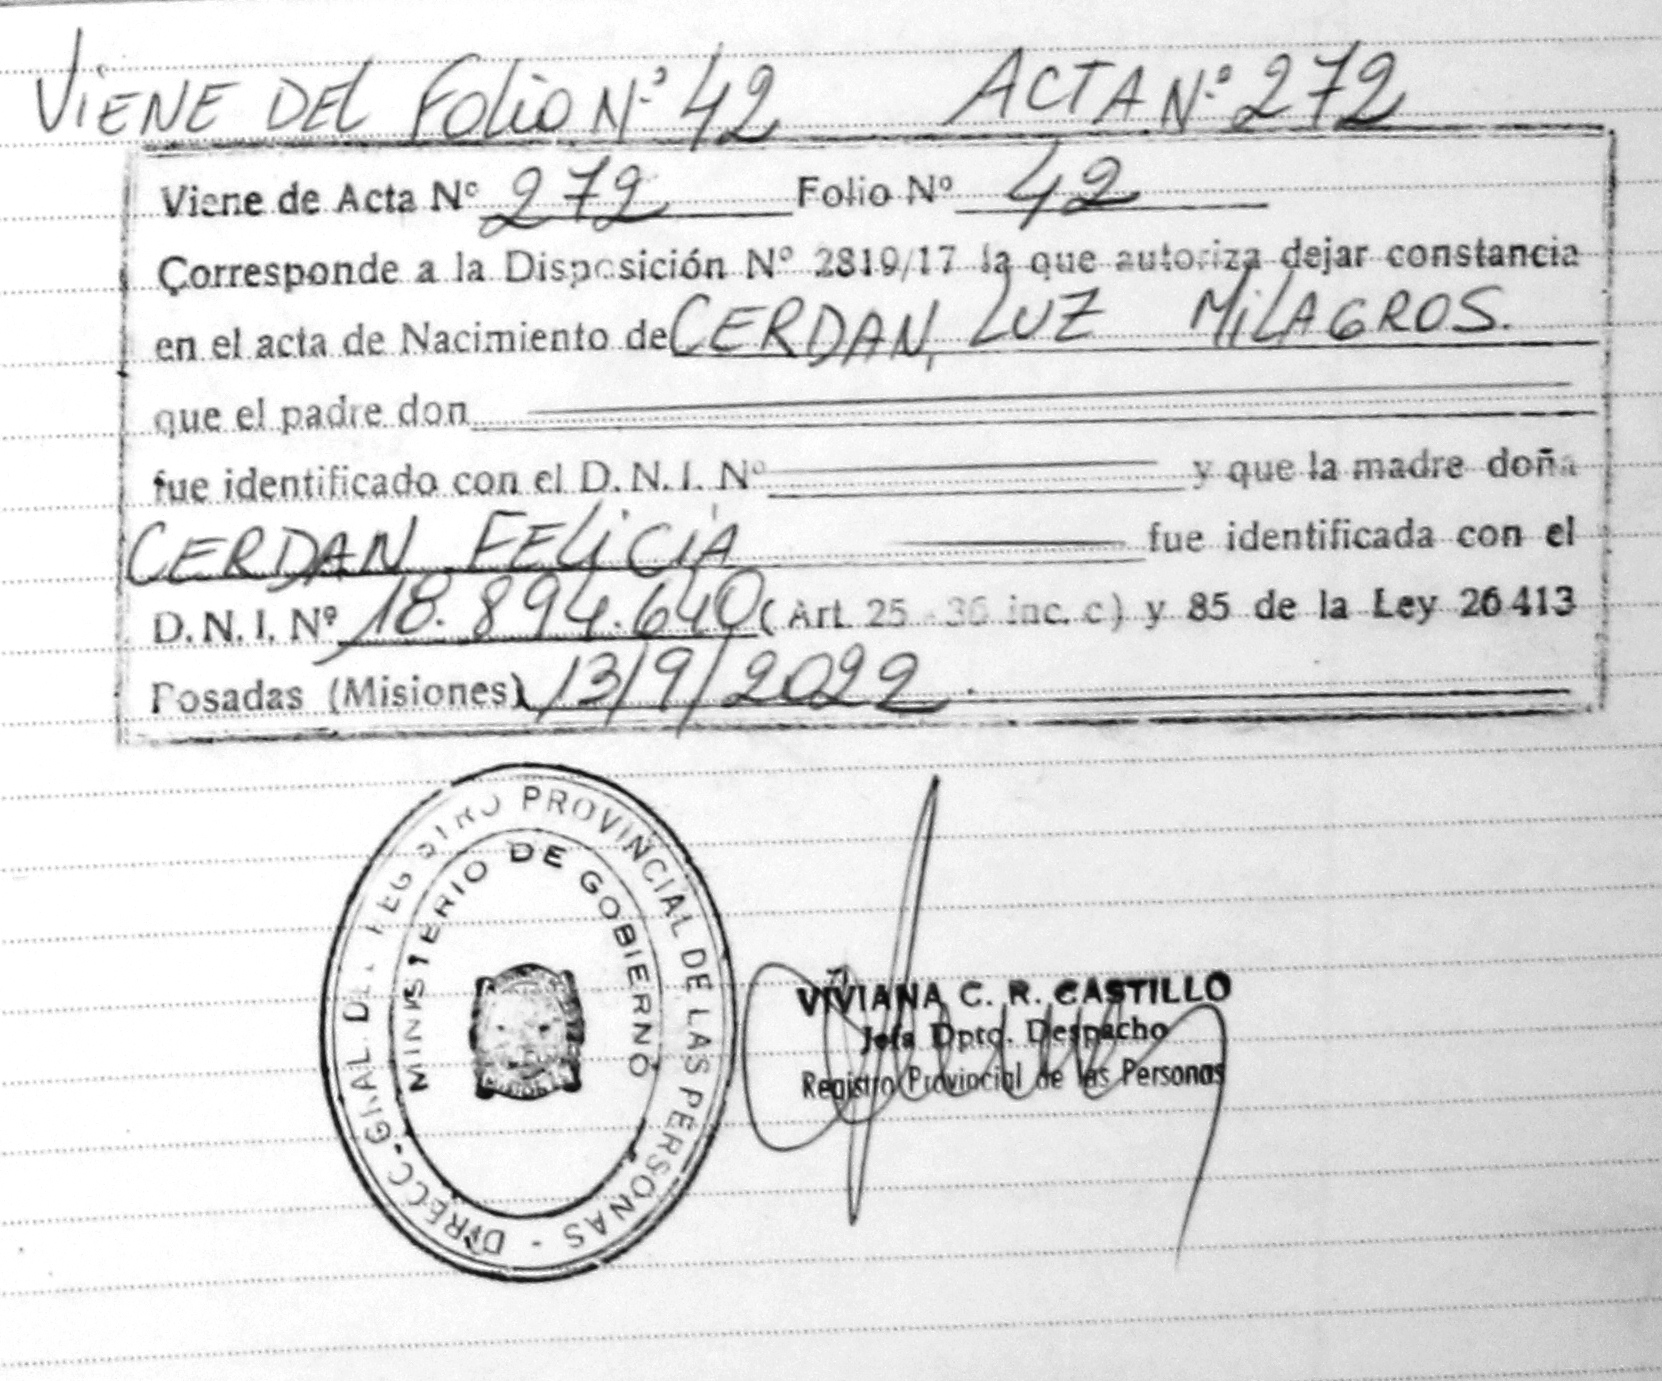 VIENE DEL FOLIO Nº 42 ACTA Nº 272
Viene de Acta Nº 272 Folio Nº 42
Corresponde a la Disposición Nº 2819/17 la que autoriza dejar constancia
en el acta de Nacimiento de CERDAN, LUZ MILAGROS.
que el padre don
fue identificado con el D. N. I. Nº y que la madre doña
CERDAN FELICIA fue identificada con el
D. N. I. Nº 18.894.640 (Art. 25 - 36 inc. c) y 85 de la Ley 26413
Posadas (Misiones) 13/9/2022.
DIRECC. GRAL. DEL REGISTRO PROVINCIAL DE LAS PERSONAS -
MINISTERIO DE GOBIERNO
VIVIANA C. R. CASTILLO
Jefa Dpto. Despacho
Registro Provincial de las Personas